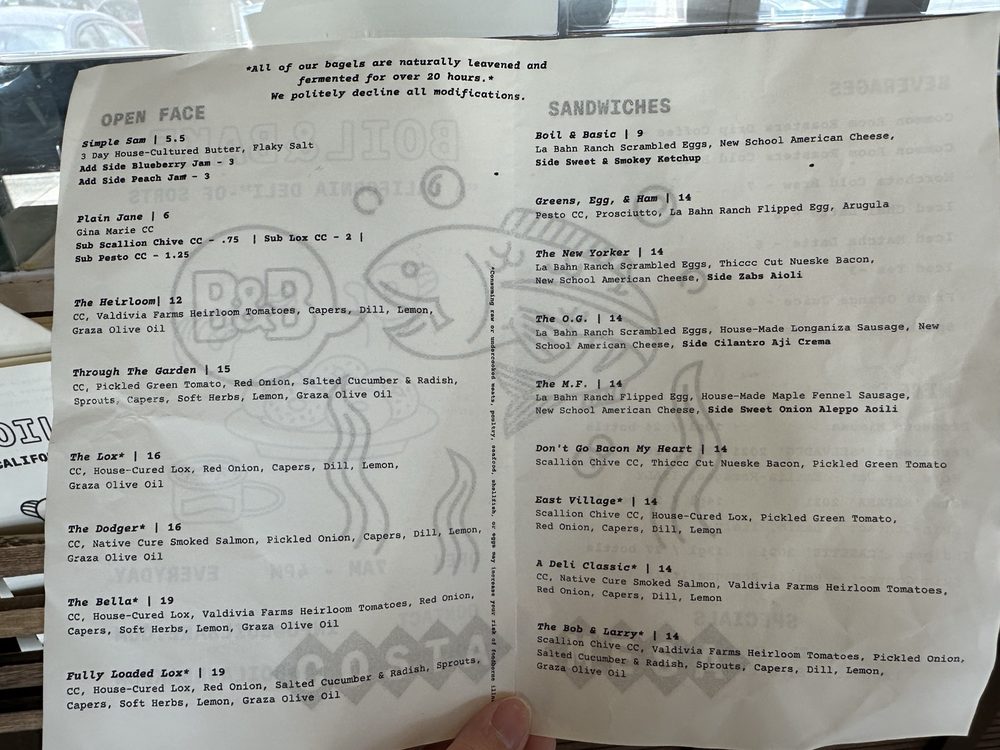 *All of our bagels are naturally leavened and
fermented for over 20 hours.*
We politely decline all modifications.
OPEN FACE
Simple Sam | 5.5
3 Day House-Cultured Butter, Flaky Salt
Add Side Blueberry Jam - 3
Add Side Peach Jam - 3
Plain Jane | 6
Gina Marie CC
Sub Scallion Chive CC - .75 | Sub Lox CC - 2 |
Sub Pesto CC - 1.25
The Heirloom| 12
CC, Valdivia Farms Heirloom Tomatoes, Capers, Dill, Lemon,
Graza Olive Oil
Through The Garden | 15
CC, Pickled Green Tomato, Red Onion, Salted Cucumber & Radish,
Sprouts, Capers, Soft Herbs, Lemon, Graza Olive Oil
The Lox* | 16
CC, House-Cured Lox, Red Onion, Capers, Dill, Lemon,
Graza Olive Oil
The Dodger* | 16
CC, Native Cure Smoked Salmon, Pickled Onion, Capers, Dill, Lemon,
Graza Olive Oil
The Bella* | 19
CC, House-Cured Lox, Valdivia Farms Heirloom Tomatoes, Red Onion,
Capers, Soft Herbs, Lemon, Graza Olive Oil
Fully Loaded Lox* | 19
CC, House-Cured Lox, Red Onion, Salted Cucumber & Radish, Sprouts,
Capers, Soft Herbs, Lemon, Graza Olive Oil
*Consuming raw or undercooked meats, poultry, seafood, shellfish, or eggs may increase your risk of foodborne
SANDWICHES
Boil & Basic | 9
La Bahn Ranch Scrambled Eggs, New School American Cheese,
Side Sweet & Smokey Ketchup
Greens, Egg, & Ham | 14
Pesto CC, Prosciutto, La Bahn Ranch Flipped Egg, Arugula
The New Yorker | 14
La Bahn Ranch Scrambled Eggs, Thiccc Cut Nueske Bacon,
New School American Cheese, Side Zabs Aioli
The O.G. | 14
La Bahn Ranch Scrambled Eggs, House-Made Longaniza Sausage, New
School American Cheese, Side Cilantro Aji Crema
The M.F. | 14
La Bahn Ranch Flipped Egg, House-Made Maple Fennel Sausage,
New School American Cheese, Side Sweet Onion Aleppo Aoili
Don't Go Bacon My Heart | 14
Scallion Chive CC, Thiccc Cut Nueske Bacon, Pickled Green Tomato
East Village* | 14
Scallion Chive CC, House-Cured Lox, Pickled Green Tomato,
Red Onion, Capers, Dill, Lemon
A Deli Classic* | 14
CC, Native Cure Smoked Salmon, Valdivia Farms Heirloom Tomatoes,
Red Onion, Capers, Dill, Lemon
The Bob & Larry* | 14
Scallion Chive CC, Valdivia Farms Heirloom Tomatoes, Pickled Onion,
Salted Cucumber & Radish, Sprouts, Capers, Dill, Lemon,
Graza Olive Oil